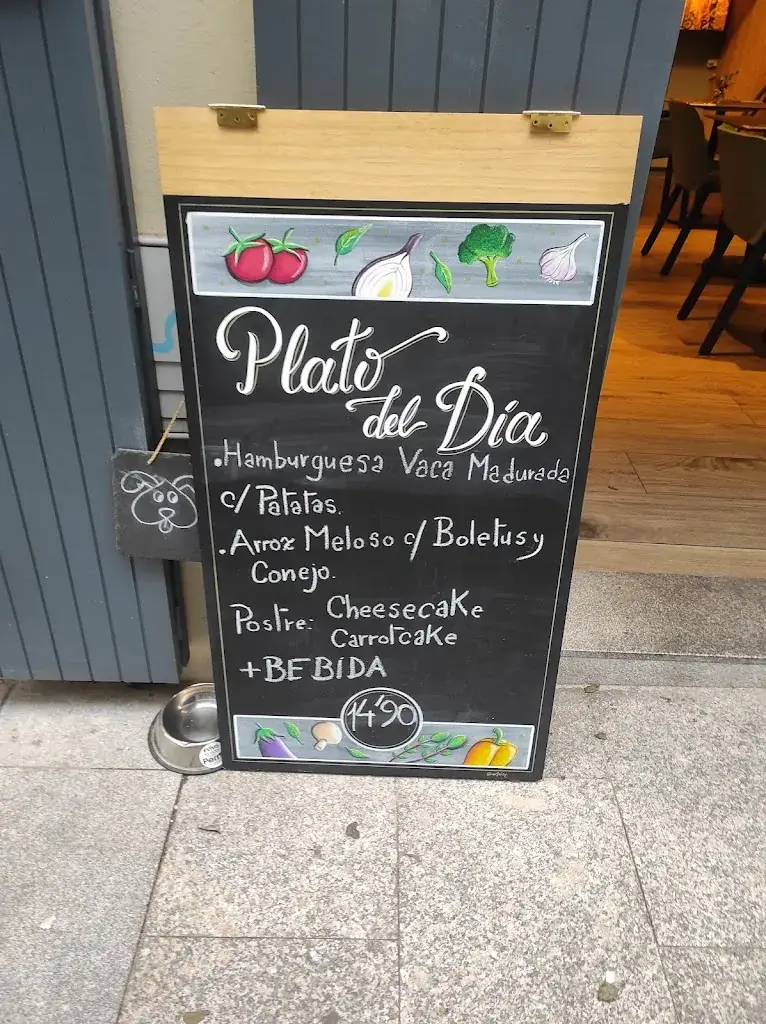 Plato
del Día
.Hamburguesa Vaca Madurada
c/ Patatas.
.Arroz Meloso c/ Boletus y
Conejo.
Postre: Cheesecake
Carrotcake
+BEBIDA
14'90